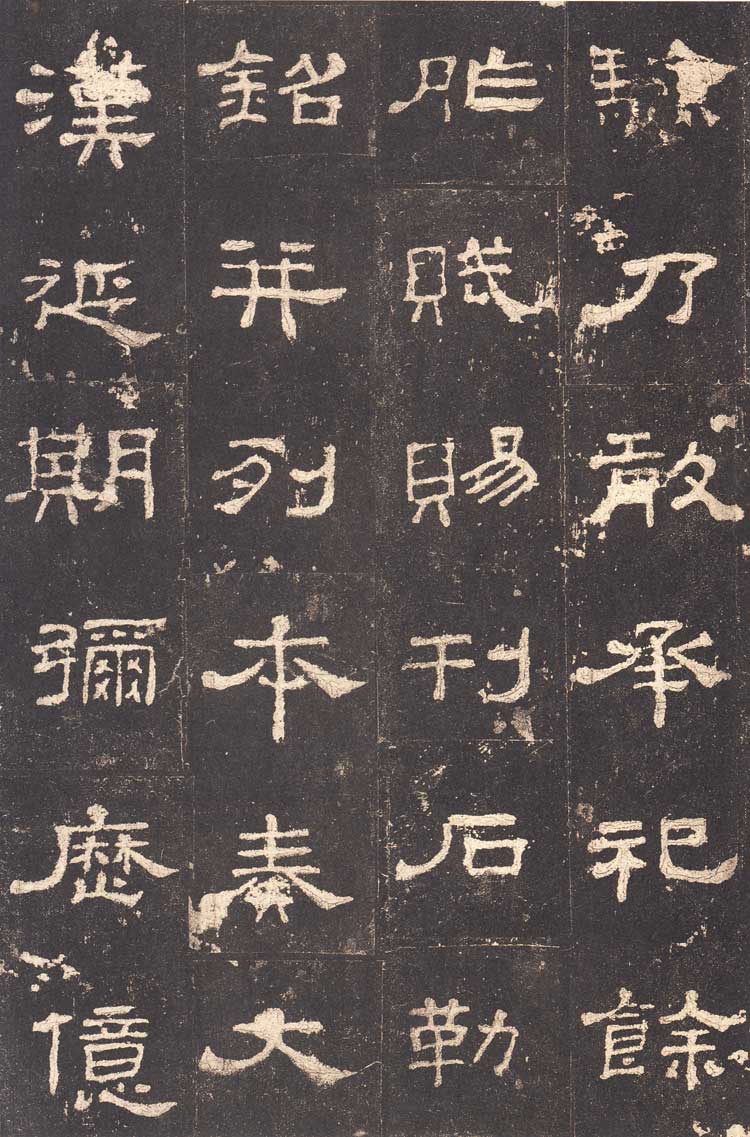 驗乃敢承祀餘
胙賦賜刊石勒
銘并列本奏大
漢延期彌歷億